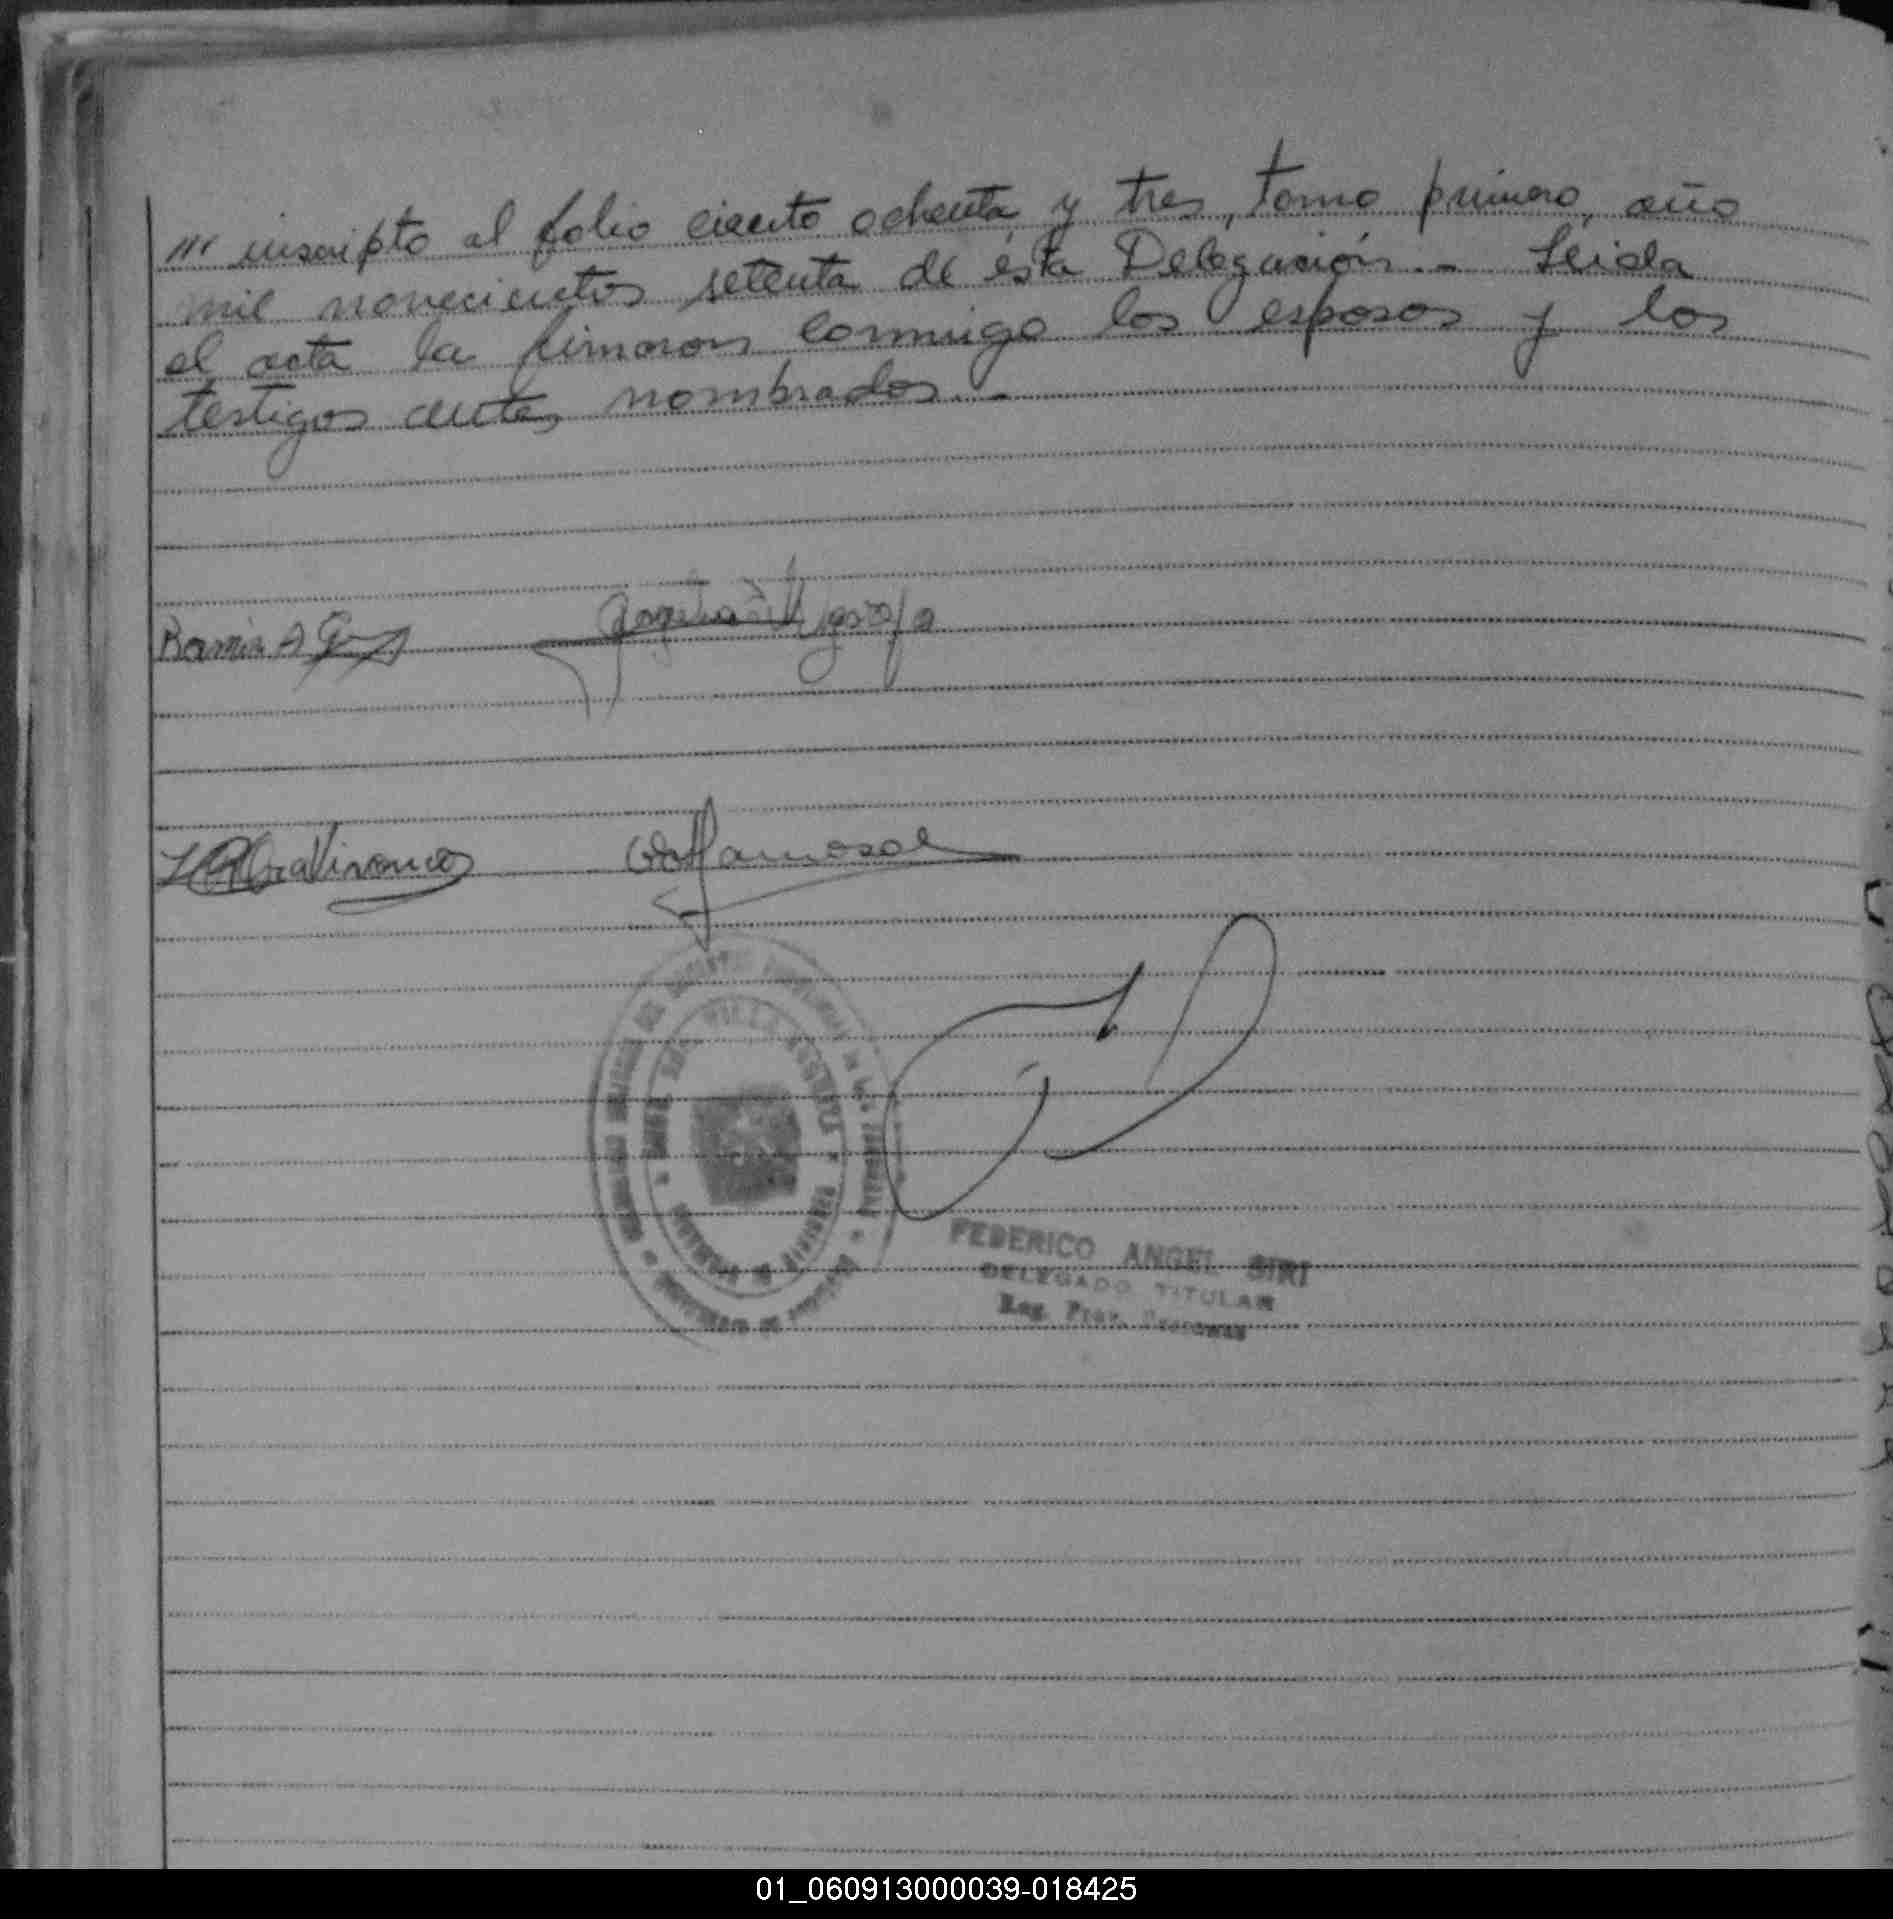 /// inscripto al folio ciento ochenta y tres, tomo primero, año
mil novecientos setenta de ésta Delegación.- Leida
el acta la firmaron conmigo los esposos y los
testigos antes nombrados.-
Ramón A
VILLA
FEDERICO ANGEL SIRI
DELEGADO TITULAR
Reg. Prov. Personas
01_060913000039-018425